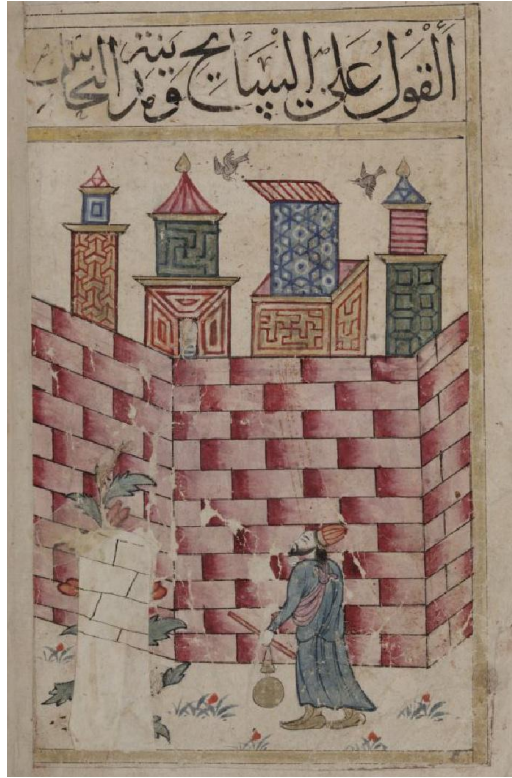 القَوْلُ عَلَي السَّايح ومدينة النحاس